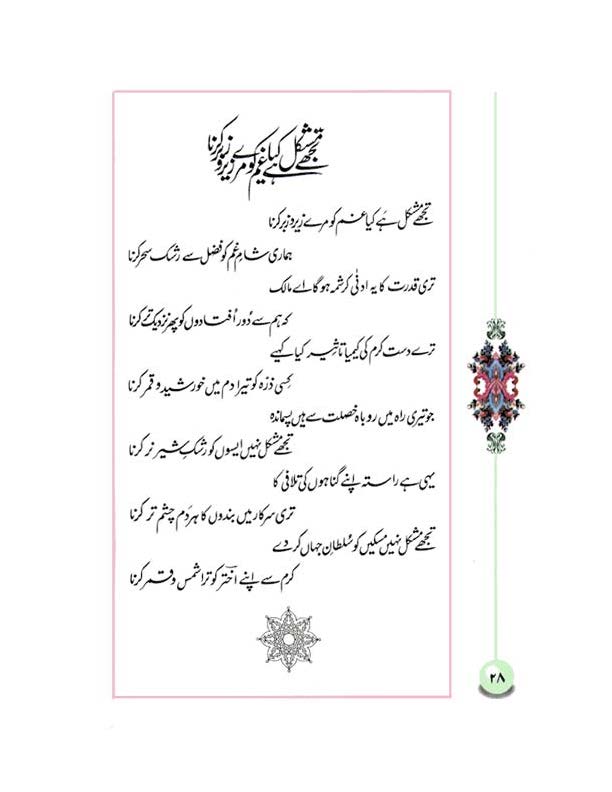 تجھے مشکل ہے کیا غم کو مرے زیر و زبر کرنا
تجھے مشکل ہے کیا غم کو مرے زیر و زبر کرنا
ہماری شامِ غم کو فضل سے رشک سحر کرنا
تری قدرت کا یہ ادنٰی کرشمہ ہوگا اے مالک
کہ ہم سے دُور اُفتادوں کو پھر نزدیک تر کرنا
ترے دست کرم کی کیمیا تاثیر کیا کہیے
کِسی ذرّہ کو تیرا دم میں خورشید و قمر کرنا
جو تیری راہ میں روباہ خصلت سے ہیں پسماندہ
تجھے مشکل نہیں ایسوں کو رشکِ شیر نر کرنا
یہی ہے راستہ اپنے گناہوں کی تلافی کا
تری سرکار میں بندوں کا ہردم چشم تر کرنا
تجھے مشکل نہیں مسکیں کو سُلطانِ جہاں کر دے
کرم سے اپنے اختر کو ترا شمس و قمر کرنا
۲۸